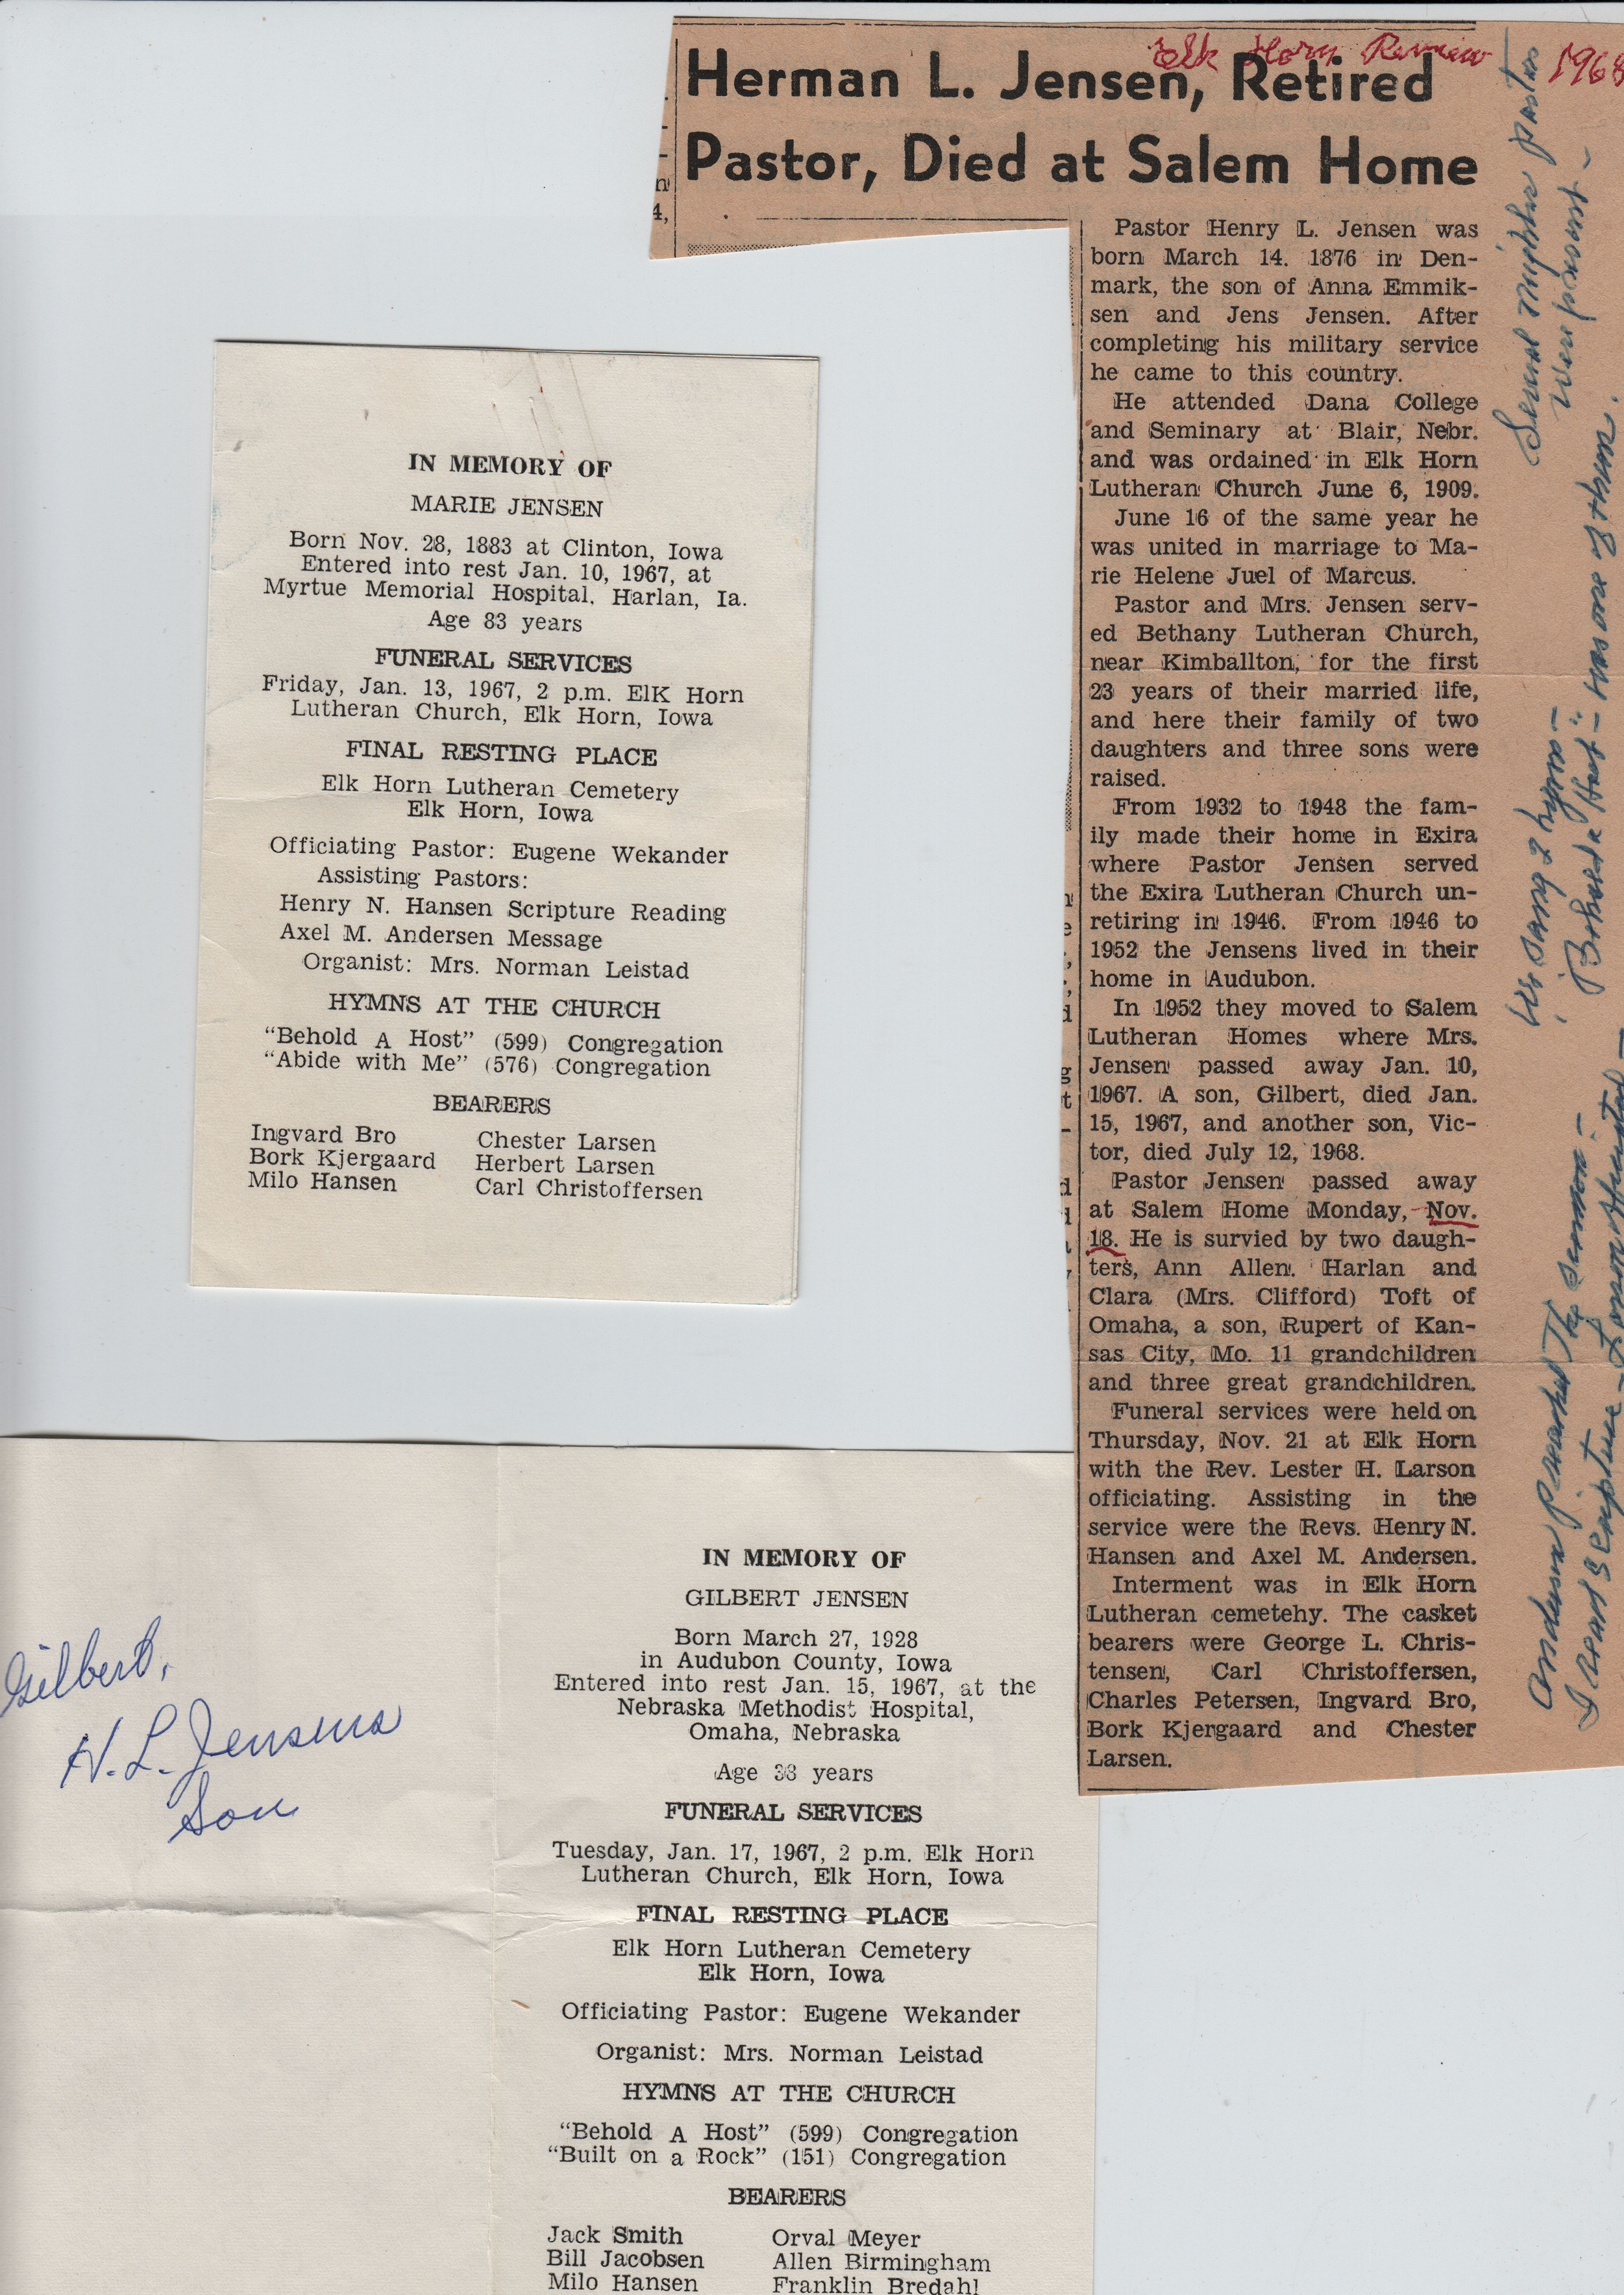 Elk Horn Review 1968
Herman L. Jensen, Retired
Pastor, Died at Salem Home
n
4,
Pastor Henry L. Jensen was
born March 14. 1876 in Den-
mark, the son of Anna Emmik-
sen and Jens Jensen. After
completing his military service
he came to this country.
He attended Dana College
and Seminary at Blair, Nebr.
and was ordained in Elk Horn
Lutheran Church June 6, 1909.
June 16 of the same year he
was united in marriage to Ma-
rie Helene Juel of Marcus.
Pastor and Mrs. Jensen serv-
ed Bethany Lutheran Church,
near Kimballton, for the first
23 years of their married life,
and here their family of two
daughters and three sons were
raised.
From 1932 to 1948 the fam-
ily made their home in Exira
where Pastor Jensen served
the Exira Lutheran Church un-
retiring in 1946. From 1946 to
1952 the Jensens lived in their
home in Audubon.
In 1952 they moved to Salem
Lutheran Homes where Mrs.
Jensen passed away Jan. 10,
1967. A son, Gilbert, died Jan.
15, 1967, and another son, Vic-
tor, died July 12, 1968.
Pastor Jensen passed away
at Salem Home Monday, Nov.
18. He is survied by two daugh-
ters, Ann Allen. Harlan and
Clara (Mrs. Clifford) Toft of
Omaha, a son, Rupert of Kan-
sas City, Mo. 11 grandchildren
and three great grandchildren.
Funeral services were held on
Thursday, Nov. 21 at Elk Horn
with the Rev. Lester H. Larson
officiating. Assisting in the
service were the Revs. Henry N.
Hansen and Axel M. Andersen.
Interment was in Elk Horn
Lutheran cemetehy. The casket
bearers were George L. Chris-
tensen, Carl Christoffersen,
Charles Petersen, Ingvard Bro,
Bork Kjergaard and Chester
Larsen.
Several neighbor pastors
were present -
We sang 2 hymns -
"Behold a Host" - was one of them.
Andersen preached the sermon -
I read Scripture -
IN MEMORY OF
MARIE JENSEN
Born Nov. 28, 1883 at Clinton, Iowa
Entered into rest Jan. 10, 1967, at
Myrtue Memorial Hospital, Harlan, Ia.
Age 83 years
FUNERAL SERVICES
Friday, Jan. 13, 1967, 2 p.m. ElK Horn
Lutheran Church, Elk Horn, Iowa
FINAL RESTING PLACE
Elk Horn Lutheran Cemetery
Elk Horn, Iowa
Officiating Pastor: Eugene Wekander
Assisting Pastors:
Henry N. Hansen Scripture Reading
Axel M. Andersen Message
Organist: Mrs. Norman Leistad
HYMNS AT THE CHURCH
"Behold A Host" (599) Congregation
"Abide with Me" (576) Congregation
BEARERS
Ingvard Bro Chester Larsen
Bork Kjergaard Herbert Larsen
Milo Hansen Carl Christoffersen
Gilbert,
H. L. Jensens
Son
IN MEMORY OF
GILBERT JENSEN
Born March 27, 1928
in Audubon County, Iowa
Entered into rest Jan. 15, 1967, at the
Nebraska Methodist Hospital,
Omaha, Nebraska
Age 38 years
FUNERAL SERVICES
Tuesday, Jan. 17, 1967, 2 p.m. Elk Horn
Lutheran Church, Elk Horn, Iowa
FINAL RESTING PLACE
Elk Horn Lutheran Cemetery
Elk Horn, Iowa
Officiating Pastor: Eugene Wekander
Organist: Mrs. Norman Leistad
HYMNS AT THE CHURCH
"Behold A Host" (599) Congregation
"Built on a Rock" (151) Congregation
BEARERS
Jack Smith Orval Meyer
Bill Jacobsen Allen Birmingham
Milo Hansen Franklin Bredahl